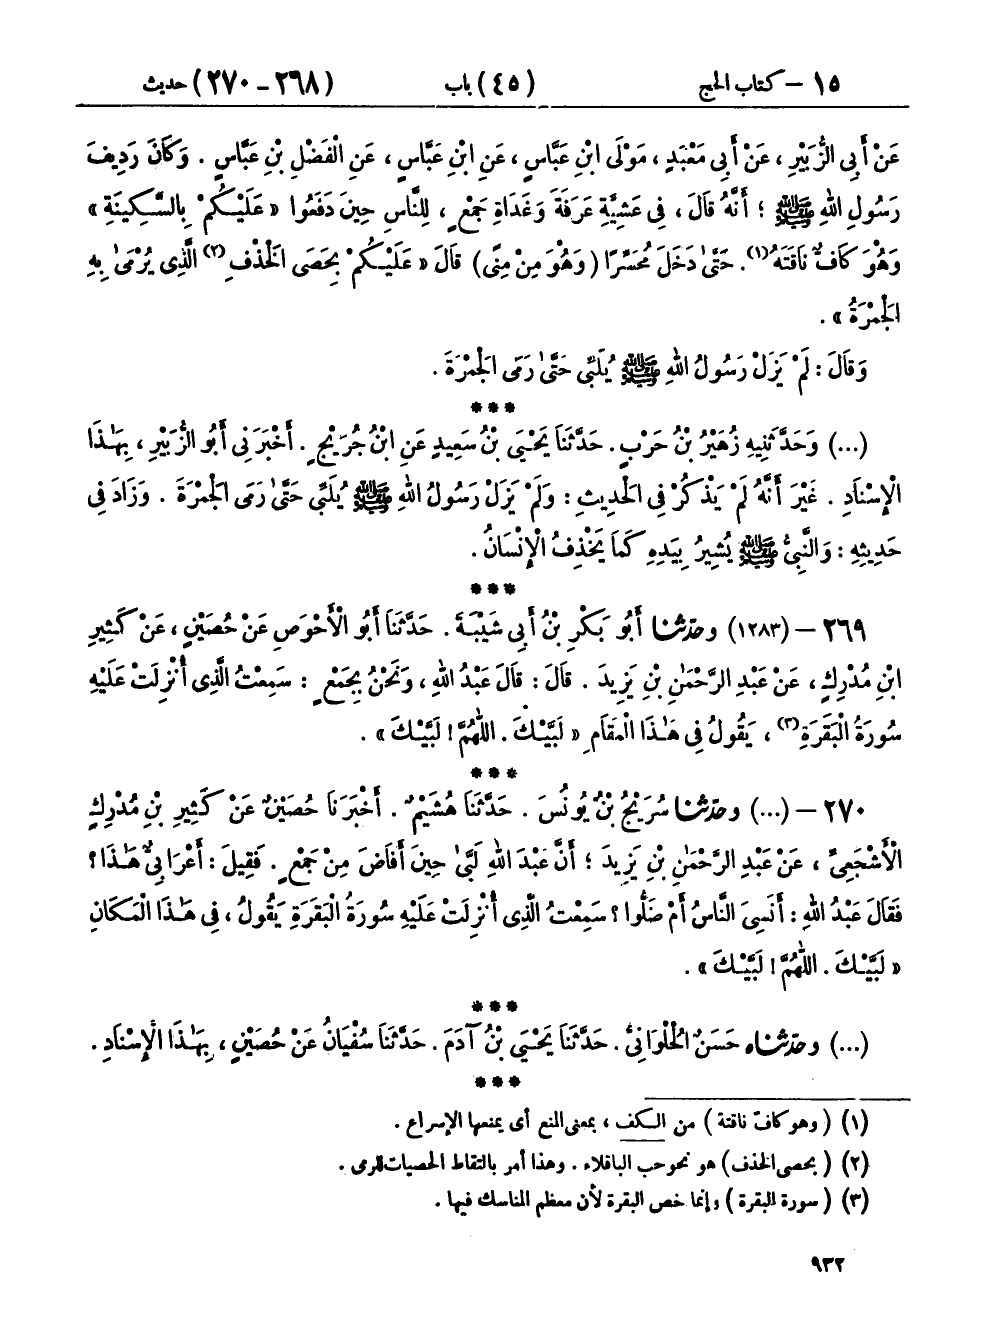 ١٥ – كتاب الحج (٤٥) باب (٢٦٨ – ٢٧٠) حديث
عَنْ أَبِي الزُّبَيْرِ ، عَنْ أَبِي مَعْبَدٍ ، مَوْلَى ابْنِ عَبَّاسٍ ، عَنِ ابْنِ عَبَّاسٍ ، عَنِ الْفَضْلِ بْنِ عَبَّاسٍ . وَكَانَ رَدِيفَ
رَسُولِ اللهِ ﷺ ؛ أَنَّهُ قَالَ ، فِي عَشِيَّةِ عَرَفَةَ وَغَدَاةِ جَمْعٍ ، لِلنَّاسِ حِينَ دَفَعُوا « عَلَيْكُمْ بِالسَّكِينَةِ »
وَهُوَ كَافٌّ نَاقَتَهُ(١). حَتَّىٰ دَخَلَ مُحَسِّرًا ( وَهُوَ مِنْ مِنًى ) قَالَ « عَلَيْكُمْ بِحَصَى الْخَذْفِ(٢) الَّذِي يُرْمَىٰ بِهِ
الْجَمْرَةُ » .
وَقَالَ : لَمْ يَزَلْ رَسُولُ اللهِ ﷺ يُلَبِّي حَتَّىٰ رَمَى الْجَمْرَةَ .
***
(...) وَحَدَّثَنِيهِ زُهَيْرُ بْنُ حَرْبٍ . حَدَّثَنَا يَحْيَى بْنُ سَعِيدٍ عَنِ ابْنُ جُرَيْجٍ . أَخْبَرَنِي أَبُو الزُّبَيْرِ ، بِهَـٰذَا
الْإِسْنَادِ . غَيْرَ أَنَّهُ لَمْ يَذْكُرْ فِي الْحَدِيثِ : وَلَمْ يَزَلْ رَسُولُ اللهِ ﷺ يُلَبِّي حَتَّىٰ رَمَى الْجَمْرَةَ . وَزَادَ فِي
حَدِيثِهِ : وَالنَّبِيُّ ﷺ يُشِيرُ بِيَدِهِ كَمَا يَخْذِفُ الْإِنْسَانُ .
***
٢٦٩ – (١٢٨٣) وحدّثنا أَبُو بَكْرِ بْنُ أَبِي شَيْبَةَ . حَدَّثَنَا أَبُو الْأَحْوَصِ عَنْ حُصَيْنٍ ، عَنْ كَثِيرِ
ابْنِ مُدْرِكٍ ، عَنْ عَبْدِ الرَّحْمَـٰنِ بْنِ يَزِيدَ . قَالَ : قَالَ عَبْدُ اللهِ ، وَنَحْنُ بِجَمْعٍ : سَمِعْتُ الَّذِي أُنْزِلَتْ عَلَيْهِ
سُورَةُ الْبَقَرَةِ(٣) ، يَقُولُ فِي هَـٰذَا الْمَقَامِ « لَبَّيْكَ . اللَّهُمَّ ! لَبَّيْكَ » .
***
٢٧٠ – (...) وحدّثنا سُرَيْجُ بْنُ يُونُسَ . حَدَّثَنَا هُشَيْمٌ . أَخْبَرَنَا حُصَيْنٌ عَنْ كَثِيرِ بْنِ مُدْرِكٍ
الْأَشْجَعِيِّ ، عَنْ عَبْدِ الرَّحْمَـٰنِ بْنِ يَزِيدَ ؛ أَنَّ عَبْدَ اللهِ لَبَّىٰ حِينَ أَفَاضَ مِنْ جَمْعٍ . فَقِيلَ : أَعْرَابِيٌّ هَـٰذَا ؟
فَقَالَ عَبْدُ اللهِ : أَنَسِيَ النَّاسُ أَمْ ضَلُّوا ؟ سَمِعْتُ الَّذِي أُنْزِلَتْ عَلَيْهِ سُورَةُ الْبَقَرَةِ يَقُولُ ، فِي هَـٰذَا الْمَكَانِ
« لَبَّيْكَ . اللَّهُمَّ ! لَبَّيْكَ » .
***
(...) وحدّثناه حَسَنٌ الْحُلْوَانِيُّ . حَدَّثَنَا يَحْيَى بْنُ آدَمَ . حَدَّثَنَا سُفْيَانُ عَنْ حُصَيْنٍ ، بِهَـٰذَا الْإِسْنَادِ .
***
(١) ( وهو كافّ ناقتة ) من الكف ، بمعنى المنع أى يمنعها الإسراع .
(٢) ( بحصى الخذف ) هو نحو حب الباقلاء . وهذا أمر بالتقاط الحصيات للرمى .
(٣) ( سورة البقرة ) وإنما خص البقرة لأن معظم المناسك فيها .
٩٣٢